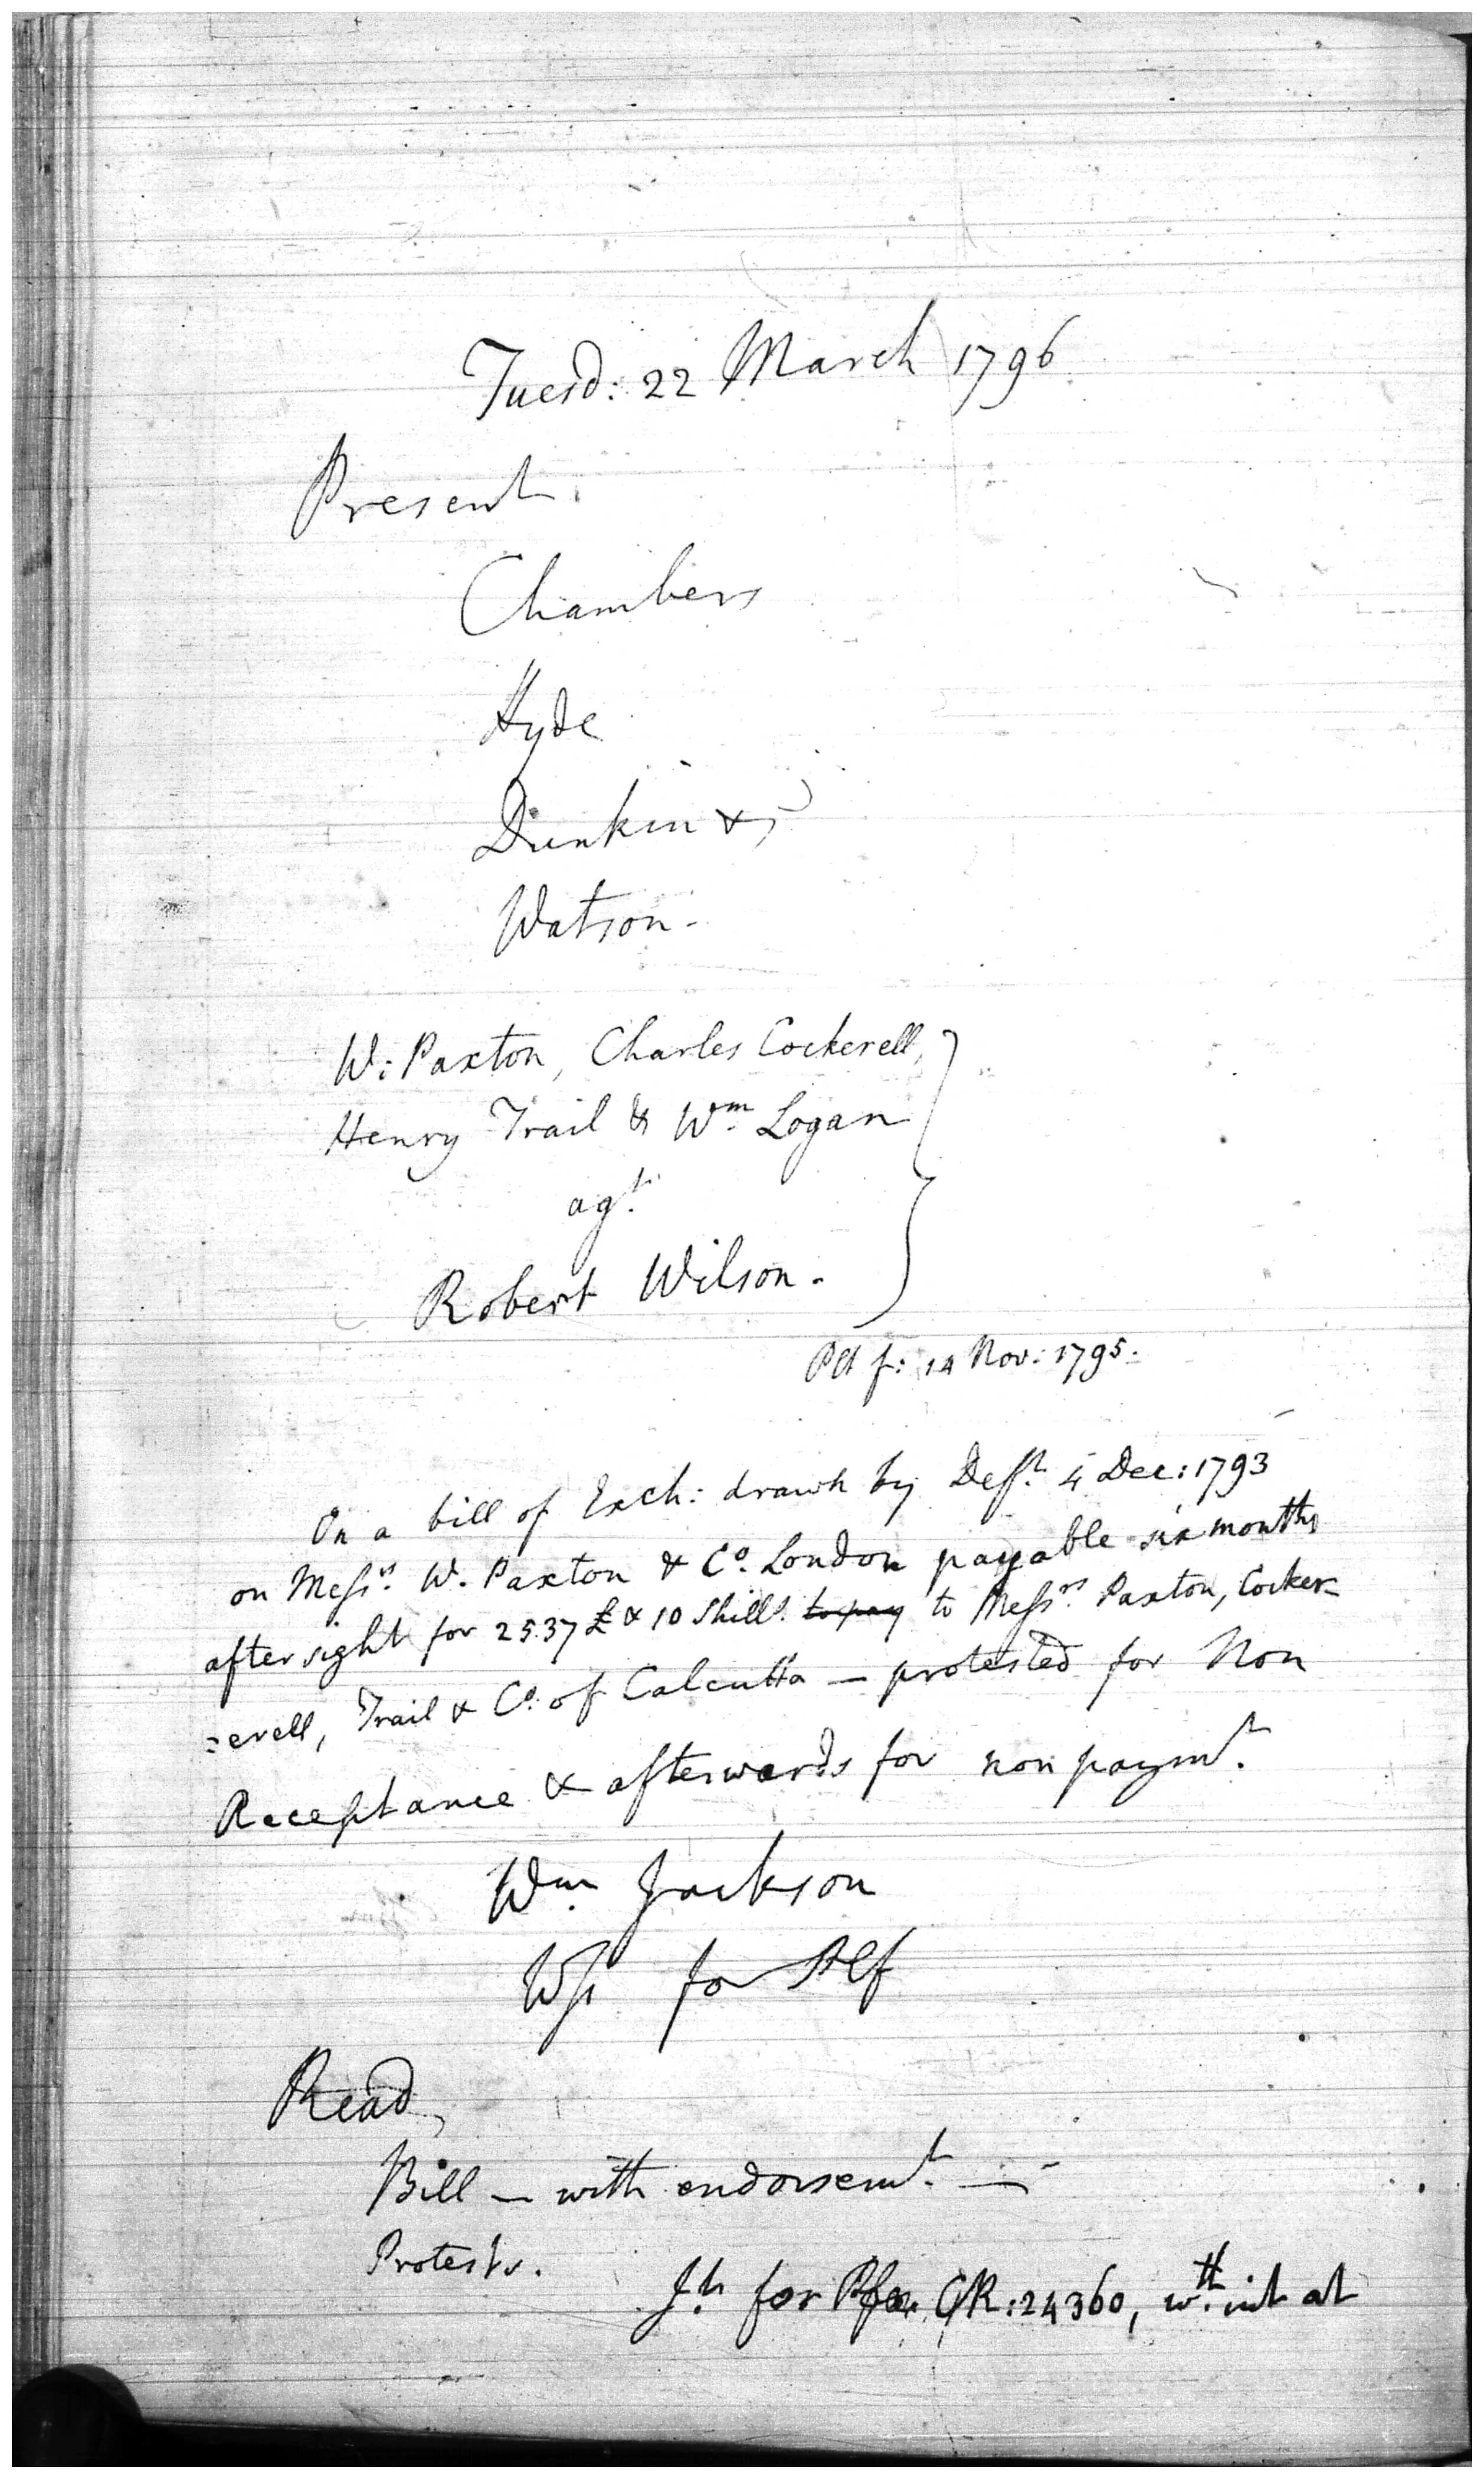 Tuesd: 22 March 1796
Present
Chambers
Hyde
Dunkin &
Watson-
W: Paxton, Charles Cockerell,
Henry Trail & Wm. Logan
agt.
Robert Wilson.
Plt f: 14 Nov: 1795.
On a bill of Exch: drawn by Deft. 4 Dec: 1793
on Messrs. W. Paxton & Co. London payable six months
after sight for 2537 £ & 10 Shills. to pay to Messrs. Paxton, Cocker-
=erell, Trail & Co. of Calcutta — protested for Non
Acceptance & afterwards for non paymt.
Wm. Jackson
for Plf
Read,
Bill — with endorsemt. —
Protests.
Jt. for CR: 24360, wth. int at